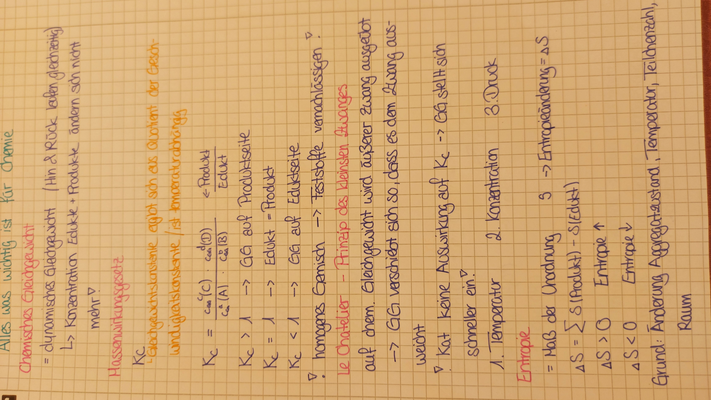 Alles was wichtig ist für Chemie
Chemisches Gleichgewicht
= dynamisches Gleichgewicht (Hin & Rück laufen gleichzeitig)
↳ Konzentration Edukte + Produkte ändern sich nicht
mehr!
Massenwirkungsgesetz
Kc
- Gleichgewichtskonstante ergibt sich aus Quotient der Gesch-
windigkeitskonstante / ist temperaturabhängig
Kc = c^c(C) · c^d(D) / c^a(A) · c^b(B) ← Produkt / Edukt
Kc > 1 → GG auf Produktseite
Kc = 1 → Edukt = Produkt
Kc < 1 → GG auf Eduktseite
! homogenes Gemisch → Feststoffe vernachlässigen!
Le Chatelier - Prinzip des kleinsten Zwanges
auf chem. Gleichgewicht wird äußerer Zwang ausgeübt
→ GG verschiebt sich so, dass es dem Zwang aus-
weicht
! Kat keine Auswirkung auf Kc → GG stellt sich
schneller ein!
1. Temperatur 2. Konzentration 3. Druck
Entropie
= Maß der Unordnung S → Entropieänderung = ΔS
ΔS = Σ S(Produkt) - S(Edukt)
ΔS > 0 Entropie ↑
ΔS < 0 Entropie ↓
Grund: Änderung Aggregatzustand, Temperatur, Teilchenzahl,
Raum